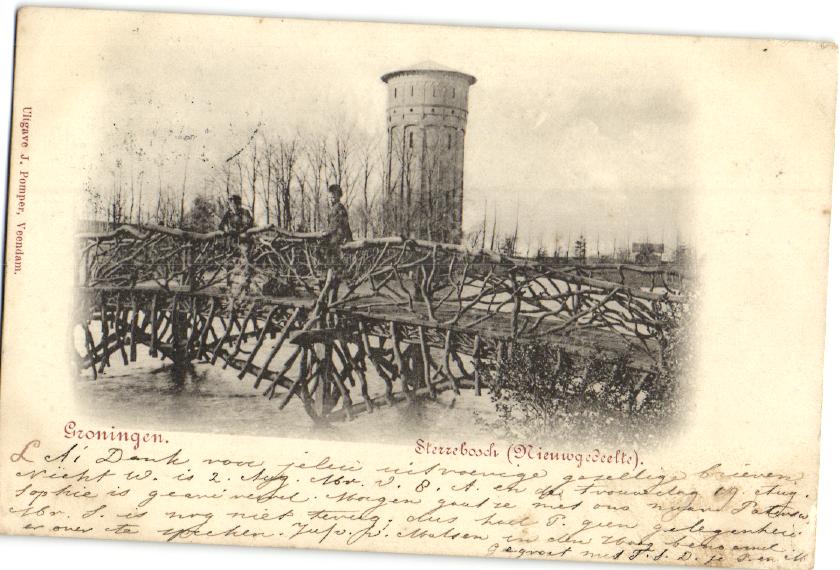 Uitgave J. Pomper, Veendam.
Groningen.
Sterrebosch (Nieuwgedeelte).
L Ai Dank voor jelui uitvoerige gezellige brieven
Nicht W. is 2. Aug. Mbr. v. B. A. en de trouwdag 19. Aug.
Sophie is geariveerd. Morgen gaat ze met ons naar
Mbr. S. is nog niet terug, dus had T. geen gelegenheid
er over te spreken. Jufr. p. Matsen in den Haag benoemd.
gegroet met T. S. D. je T. en M